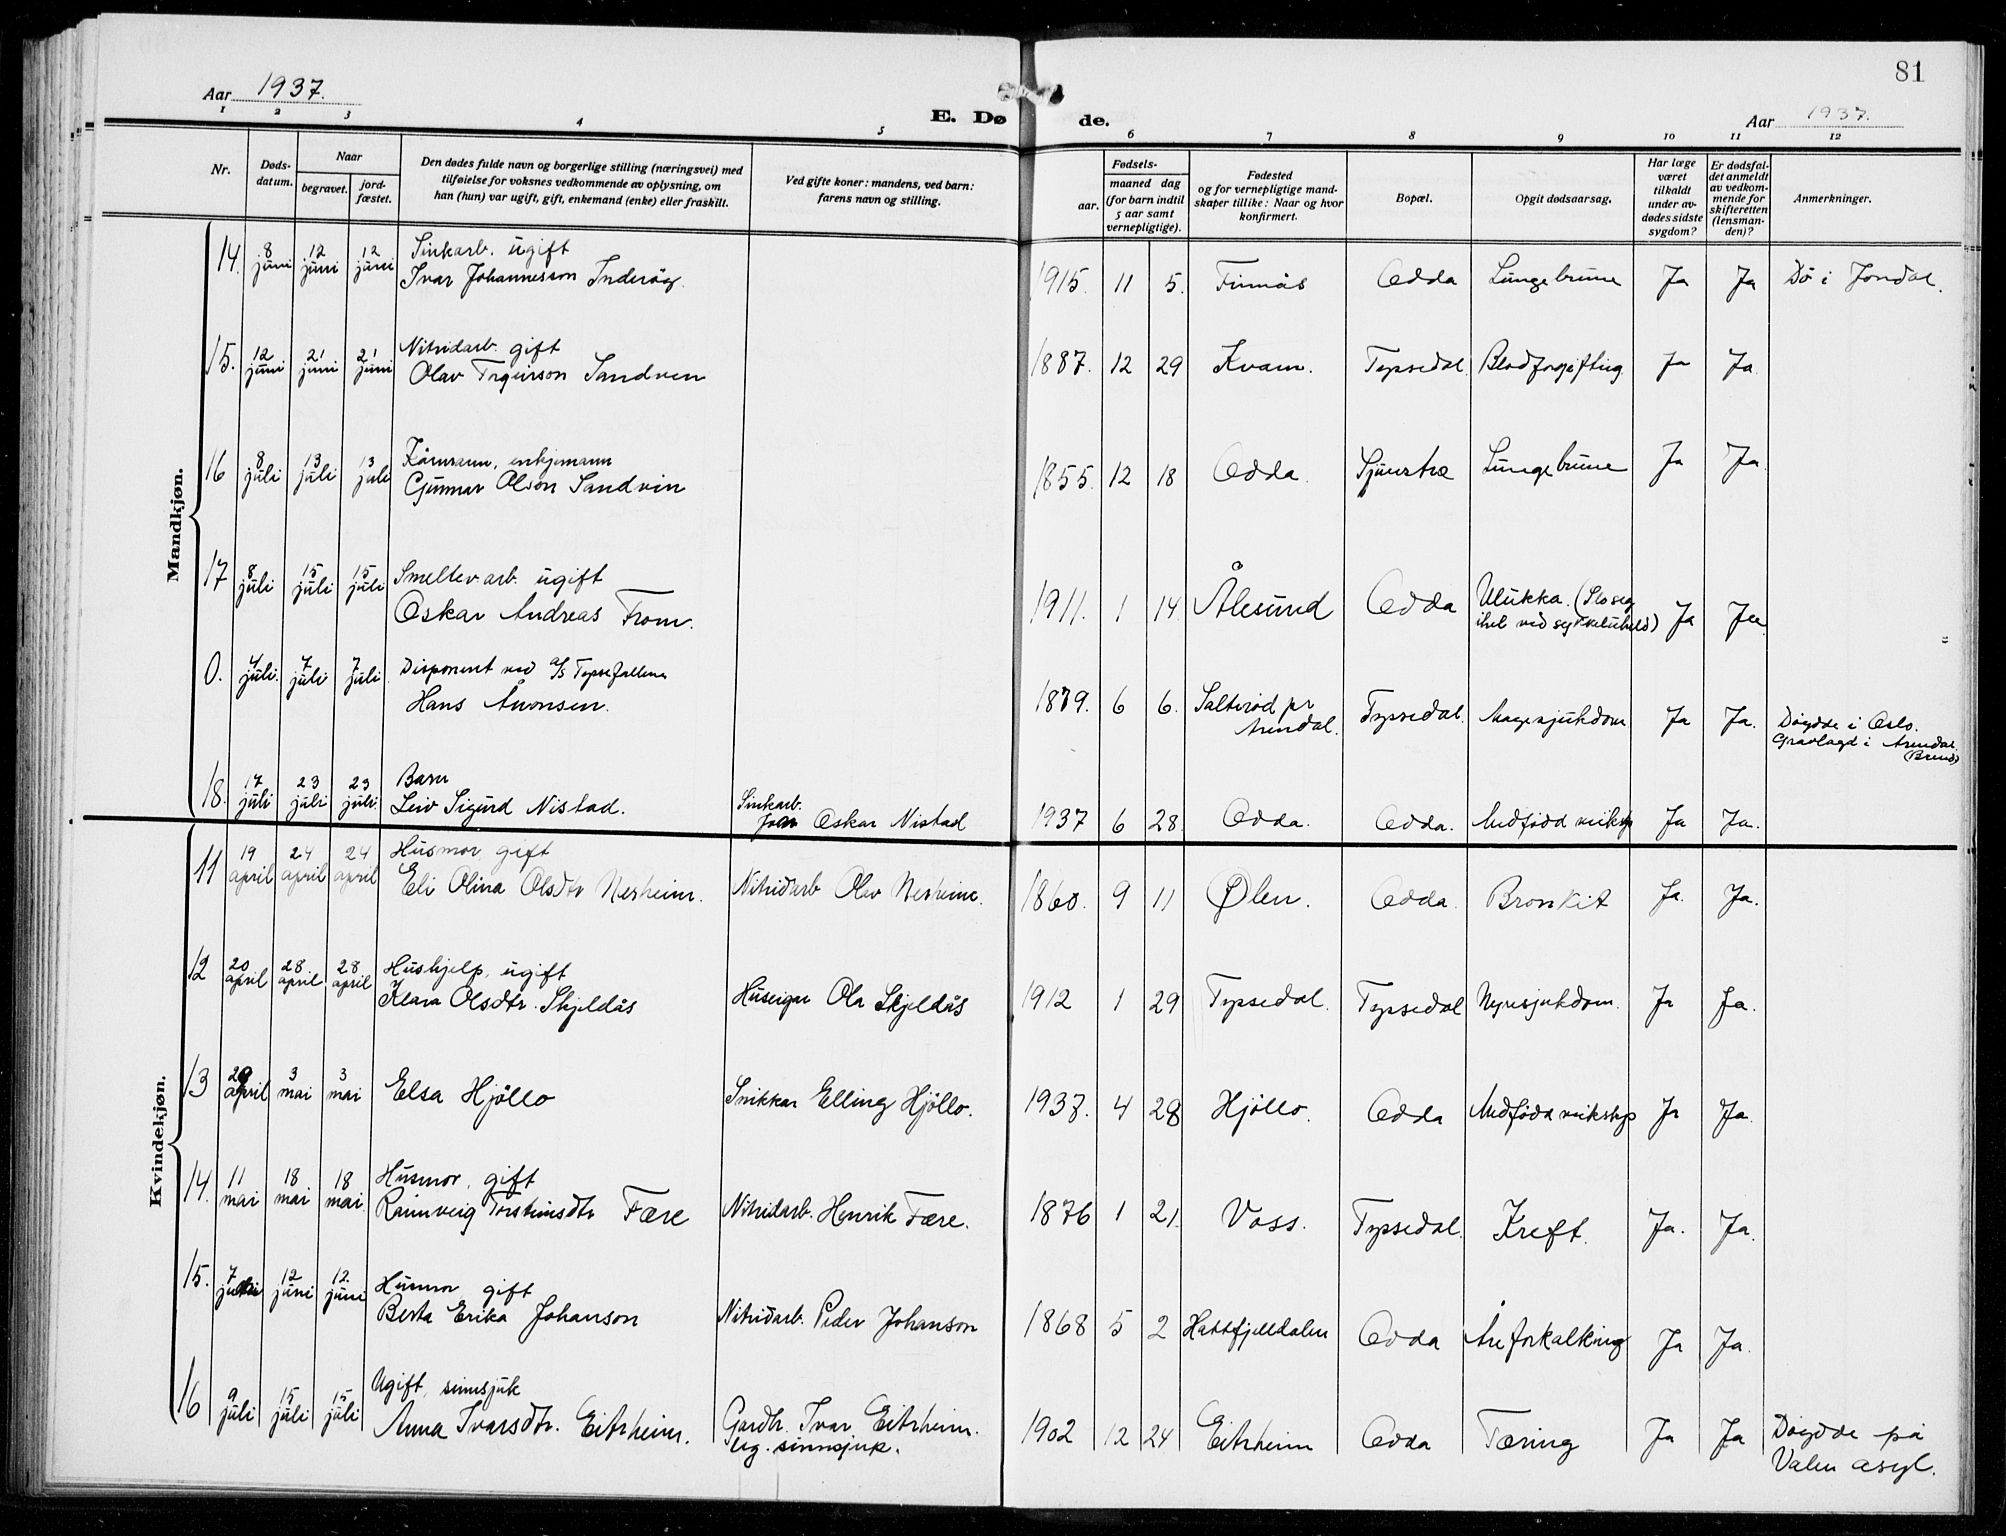 81
Aar 1937.
E. Dø de.
Aar 1937.
1 2 3 4 5 6 7 8 9 10 11 12
Nr.
Døds-datum.
Naar
begravet.
jord-fæstet.
Den dødes fulde navn og borgerlige stilling (næringsvei) med
tilføielse for voksnes vedkommende av oplysning, om
han (hun) var ugift, gift, enkemand (enke) eller fraskilt.
Ved gifte koner: mandens, ved barn:
farens navn og stilling.
Fødsels-
aar.
maaned dag
(for barn indtil
5 aar samt
vernepligtige).
Fødested
og for vernepligtige mand-
skaper tillike: Naar og hvor
konfirmert.
Bopæl.
Opgit dødsaarsag.
Har læge
været
tilkaldt
under av-
dødes sidste
sygdom?
Er dødsfal-
det anmeldt
av vedkom-
mende for
skifteretten
(lensman-
den)?
Anmerkninger.
Mandkjøn.
14. 8 juni 12 juni 12 juni Sinkarb. ugift
Ivar Johannesson 1915. 11 5. Finnås Odda Lungebrune Ja Ja Dö i Jondal.
15. 12 juni 21 juni 21 juni Nitridarb. gift
Olav Torgeirson Sandven 1887. 12 29 Kvam. Tyssedal. Blodforgiftnig Ja Ja
16 8 juli 13 juli 13 juli Kårmann, enkjemann
Gunnar Olson Sandvin 1855. 12 18 Odda. Lungebrune Ja Ja
17 8 juli 15 juli 15 juli Smeltev.arb. ugift
Oskar Andreas From. 1911. 1 14. Ålesund Odda Ulukka. (Slo seg
ihel ved sykkeluheld) Ja Ja
0. 4 juli. 7 juli 7 juli Disponent ved a/s Tyssefallene
Hans Aronsen. 1879. 6 6. Salteröd pr
Arendal. Tyssedal. Magesjukdom Ja Ja. Döydde i Oslo.
Gravlagd i Arendal.
18. 17 juli 23 juli 23 juli Barn
Leiv Sigurd Nistad. Sinkarb.
Oskar Nistad 1937 6 28. Odda. Odda. Medfödd veikskp Ja Ja.
Kvindekjøn.
11 19 april 24 april 24 april Husmor, gift
Eli Olina Olsdtr Nesheim. Nitridarb Olav Nesheim. 1860. 9 11 Ølen. Odda. Bronkit Ja. Ja.
12 20 april 28 april 28 april Hushjelp, ugift
Klara Olsdtr. Skjeldås Huseigar Ola Skjeldås 1912 1 29 Tyssedal. Tyssedal Nyresjukdom. Ja Ja.
13 29 april 3 mai 3 mai Elsa Hjöllo Snikkar Elling Hjöllo. 1937. 4 28 Hjöllo. Odda Medfödd veikskp Ja Ja.
14. 11 mai 18 mai 18 mai Husmor, gift
Rannveig Torsteinsdtr Fære Nitridarb. Henrik Fære. 1876 1 21. Voss. Tyssedal. Kreft. Ja. Ja.
15. 7 juni 12 juni 12 juni Husmor gift
Berta Erika Johanson Nitridarb. Peder Johanson 1868 5 2 Hattfjelldalen Odda Åreforkalking Ja Ja.
16 9 juli 15 juli 15 juli Ugift, sinnsjuk
Anna Ivarsdtr. Eitrheim. Gardbr. Ivar Eitrheim.
ug. sinnsjuk. 1902 12 24 Eitrheim Odda Tæring Ja Ja Döydde på
Valen asyl.